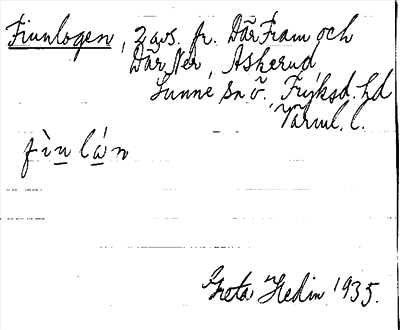 Finnlogen, 2 avs. fr. Där Fram och
Där Ner, Askerud,
Sunne sn ö. Fryksd. hd
Värml. l.
fìn lán
Greta Hedin 1935.